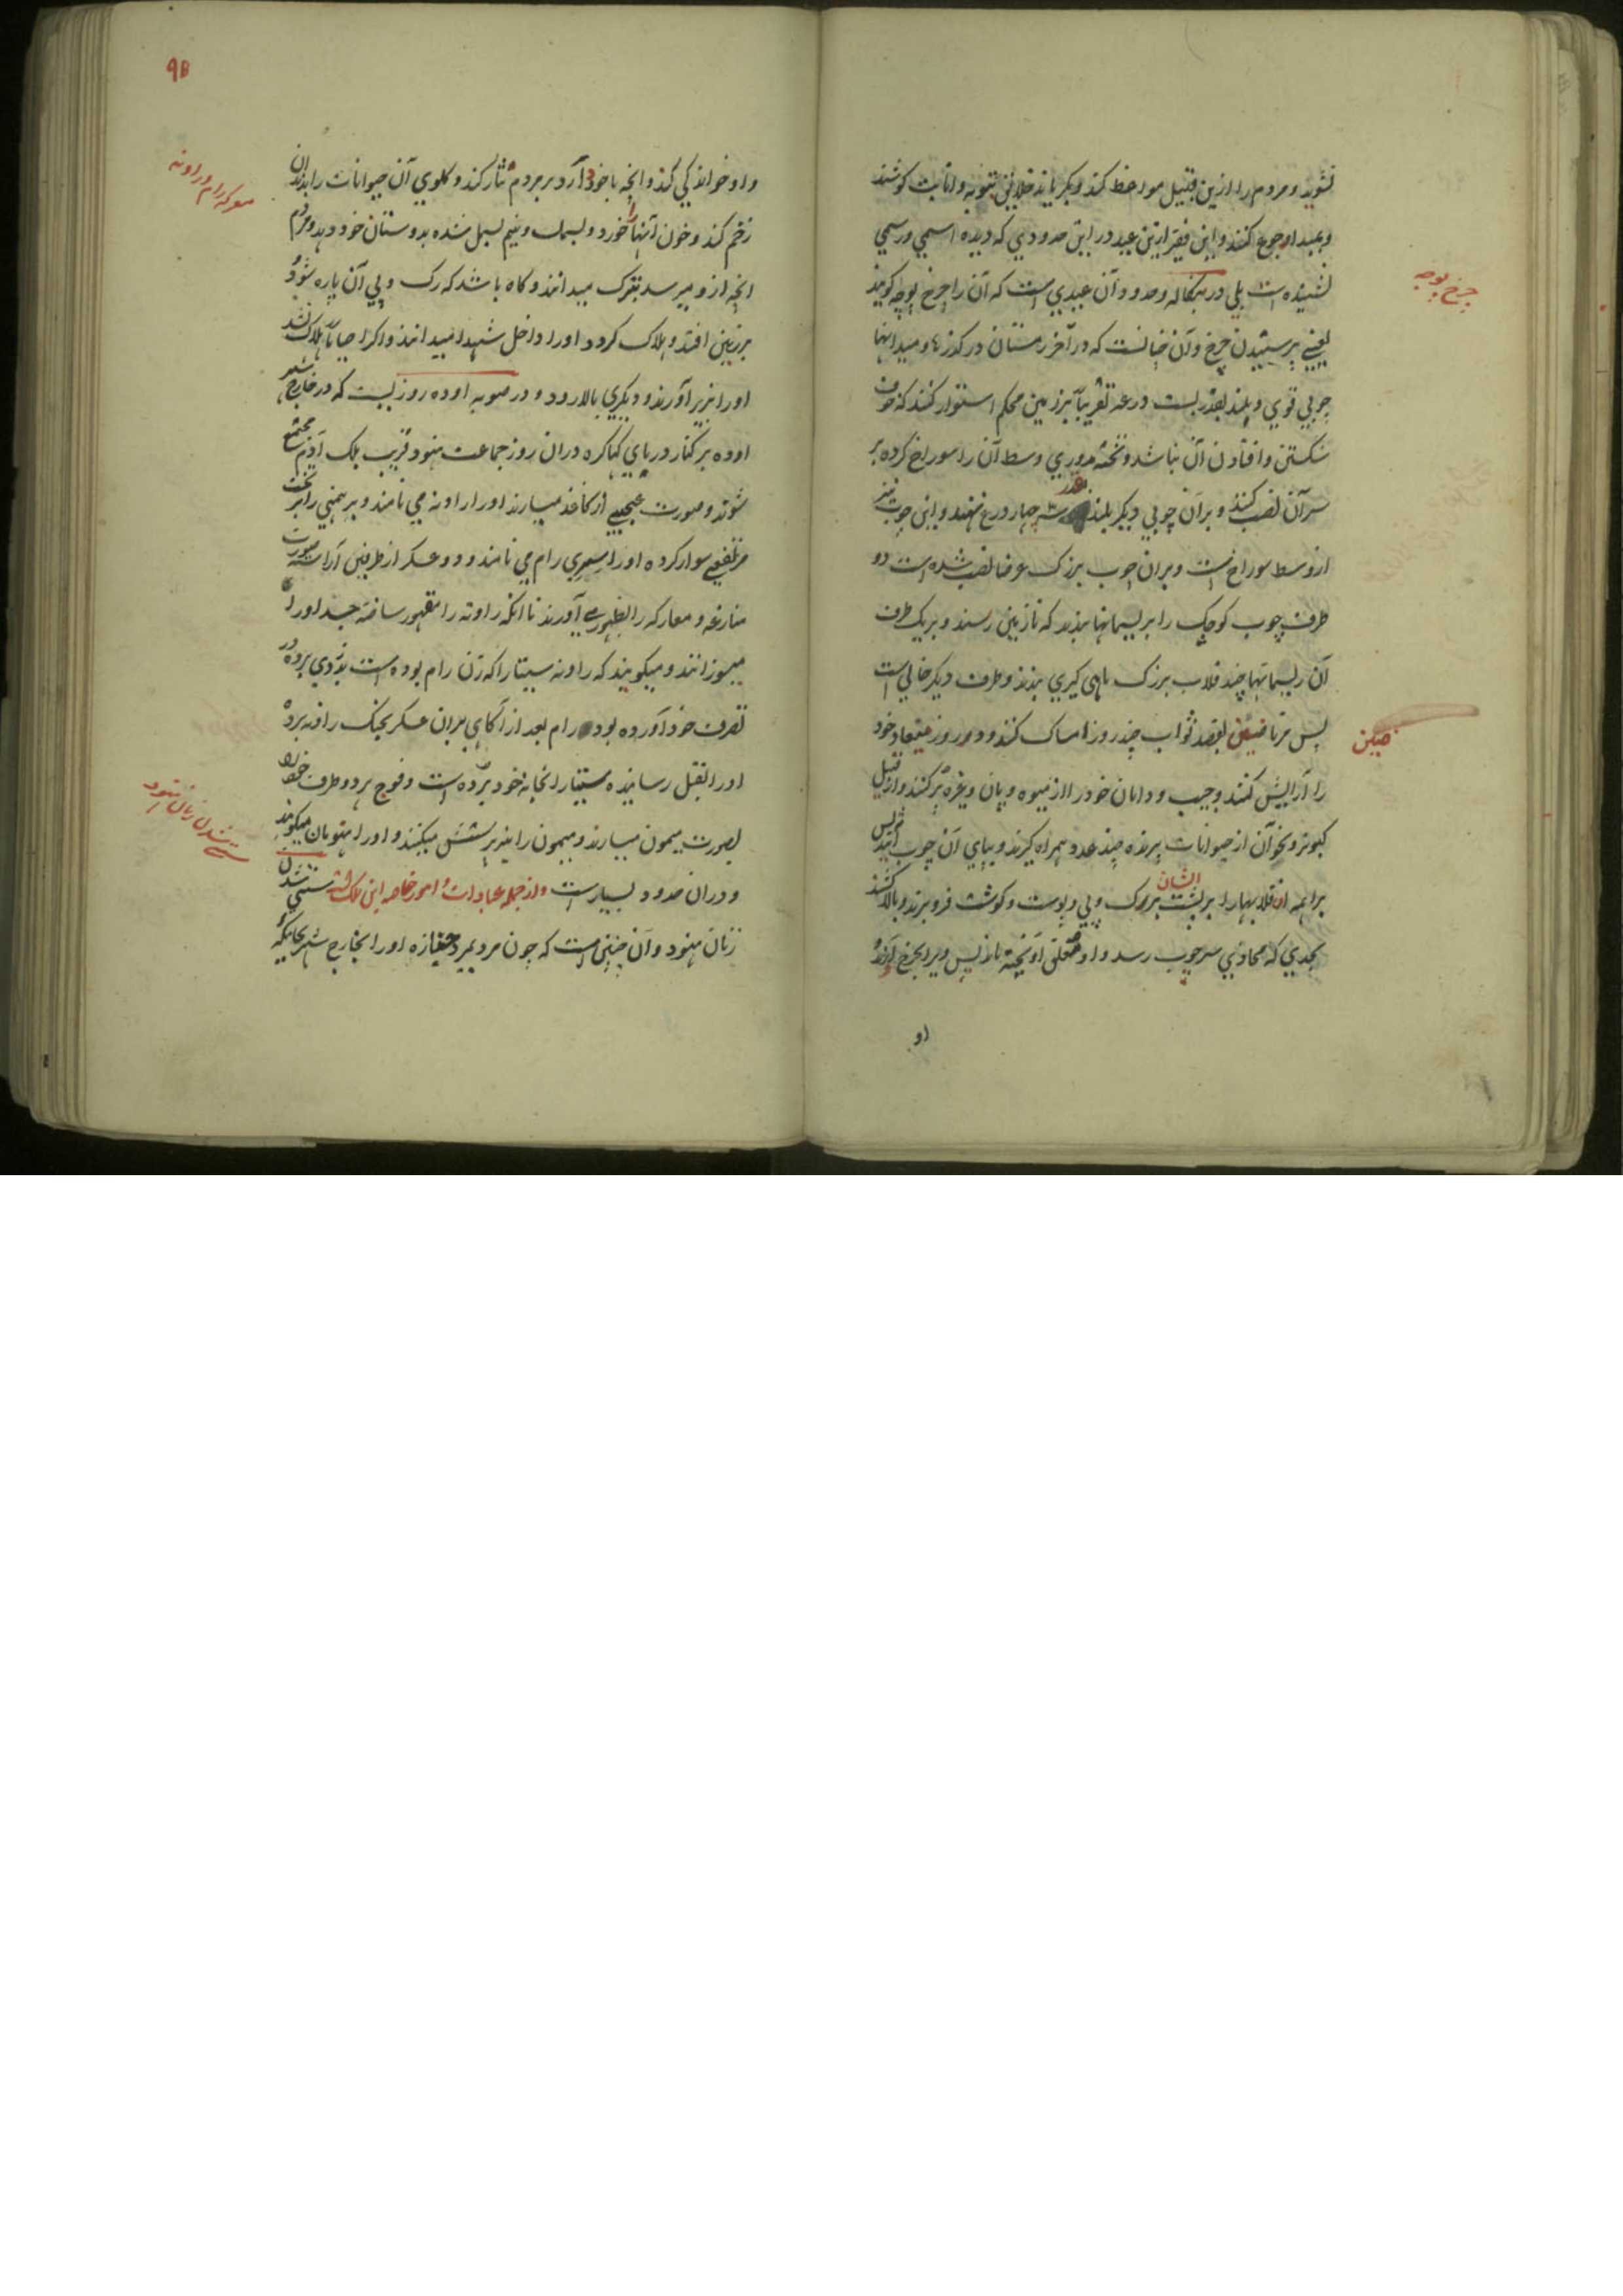 نشوید و مردم را ازین قبیل مواعظ کند و بکریاند خلایق بتوبه و انابت کوشند
و بمبداء رجوع کنند و این فقیر ازین عید در این حدودی که دیده اسمی و رسمی
نشنیده است بلی در بنکاله و حدود آن عیدی است که آن را چرخ پوجه کویند
چرخ پوجه
یعنی پرستیدن چرخ و آن چنانست که در آخر زمستان در کذرها و میدانها
چوبی قوی و بلند بقدر بیست درعه تقریباً بر زمین محکم استوار کنند که خوف
شکستن و افتادن آن نباشد و تختهٔ مدوری وسط آن را سوراخ کرده بر
سر آن نصب کنند و بر آن چوبی دیکر بلند بقدر سه چهار درع نهند و این چوب نیز
از وسط سوراخ است و بران چوب بزرک عرضا نصب شده است دو
طرف چوب کوچک را بریسمانها بندند که تا زمین رسند و بر یک طرف
آن ریسمانها چند قلاب بزرک ماهی کیری بندند و طرف دیکر خالی است
پس مرتاضین بقصد ثواب چند روز امساک کنند و در روز میعاد خود
ضین
را آرایش کنند و جیب و دامان خود را از میوه و پان و غیره پر کنند و از قبیل
کبوتر و نحو آن از حیوانات پرنده چند عدد همراه کیرند و بپای آن چوب آیند پس
براهمه آن قلابها را بر پشت ایشان بر رک و پی و پوست و کوشت فرو برند و بالا کشند
بحدی که محاذی سر چوب رسد و او معلق آویخته ماند پس ویرا بچرخ آرند
او
۹۵
و او خوانندکی کند و آنچه با خود دارد بر مردم نثار کند و کلوی آن حیوانات را بدندان
معرکه رام و راونه
زخم کند و خون آنها را خورد و بسمل و نیم بسمل شده بدوستان خود دهد و مردم
آنچه ازو میرسد بتبرک میدانند و کاه باشد که رک و پی آن پاره شود و
بر زمین افتد و هلاک کردد او را داخل شهدا میدانند و اکر احیاناً هلاک نشد
او را بزیر آورند و دیکری بالا رود و در صوبه اوده روزیست که در خارج شهر
اوده بر کنار دریای کهاکره دران روز جماعت هنود قریب بلک آدم مجتمع
شوند و صورت عجیبی از کاغذ میسازند او را راونه می نامند و برهمنی را بر تخت
مرتفعی سوار کرده او را سری رام می نامند و دو عسکر از طرفین آراسته صورت
منازعه و معارکه را بظهور می آورند تا آنکه راونه را مقهور ساخته جسد او را
میسوزانند و میکویند که راونه سیتا را که زن رام بوده است بدزدی برده در
تصرف خود آورده بود رام بعد از آکاهی بران عسکر بجنک راونه برده
او را بقتل رسانیده سیتا را بخانه خود برده است و فوج هر دو طرف خود را
بصورت میمون میسازند و میمون را نیز پرستش میکنند و او را هنومان میکویند
ستی شدن زنان هنود
و دران حدود بسیار است و از جمله عبادات و امور خاصه این ملک است ستی شدن
زنان هنود و آن چنین است که چون مرد بمیرد جنازه او را بخارج شهر بجائیکه